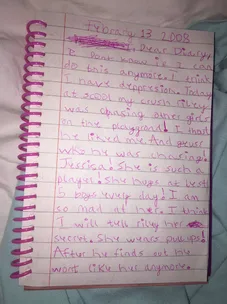 Febuary 13 2008
Dear Diary,
I dont know if I can
do this anymore. I think
I have deppresion. Today
at scool my crush riley
was chasing other girls
on the playground! I thout
he liked me. And geuss
who he was chaseing.
Jessica. She is such a
player. She hugs at lest
5 boys every day! I am
so mad at her. I think
I will tell riley her
secret. She wears pull ups!
After he finds out he
wont like her anymore.